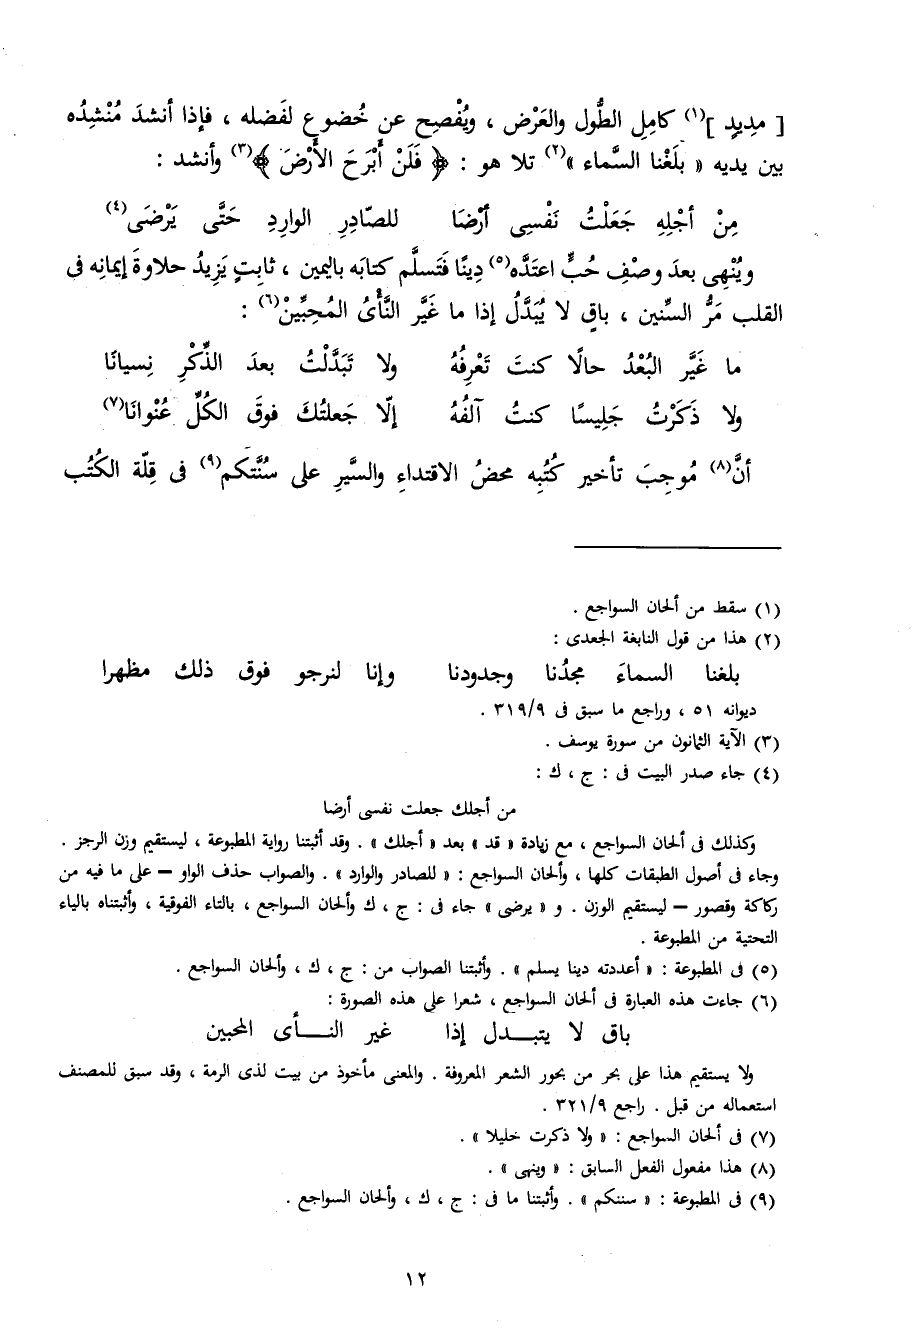 [ مدِيدٍ ](١) كامِلِ الطُّول والعَرْض ، ويُفْصِح عن خُضوع لفَضله ، فإذا أنشدَ مُنْشِدُه
بين يديه « بلَغْنا السَّماء »(٢) تلا هو : ﴿ فَلَنْ أَبْرَحَ الأَرْضَ ﴾(٣) وأنشد :
مِنْ أجْلِهِ جَعَلْتُ نَفْسِى أرْضَا للصّادِرِ الوارِدِ حَتَّى يَرْضَى(٤)
ويُنْهِى بعدَ وصْفِ حُبٍّ اعتدَّه(٥) دِينًا فتَسلَّم كتابَه باليمين ، ثابتٍ يَزِيدُ حلاوةَ إيمانِه فى
القلب مَرُّ السِّنين ، باقٍ لا يُبَدَّلُ إذا ما غَيَّر النَّأىُ المُحبِّينْ(٦) :
ما غَيَّر البُعْدُ حالًا كنتَ تَعْرِفُهُ ولا تَبَدَّلْتُ بعدَ الذِّكْرِ نِسيانَا
ولا ذَكَرْتُ جَلِيسًا كنتُ آلفُهُ إلّا جَعلتُكَ فوقَ الكُلِّ عُنْوانَا(٧)
أنَّ(٨) مُوجِبَ تأخير كُتُبِه محضُ الاقتداءِ والسَّيرِ على سُنَّتكم(٩) فى قِلّة الكُتُب
(١) سقط من ألحان السواجع .
(٢) هذا من قول النابغة الجعدى :
بلغنا السماءَ مجدُنا وجدودنا وإنا لنرجو فوق ذلك مظهرا
ديوانه ٥١ ، وراجع ما سبق فى ٣١٩/٩ .
(٣) الآية الثمانون من سورة يوسف .
(٤) جاء صدر البيت فى : ج ، ك :
من أجلك جعلت نفسى أرضا
وكذلك فى ألحان السواجع ، مع زيادة « قد » بعد « أجلك » . وقد أثبتنا رواية المطبوعة ، ليستقيم وزن الرجز .
وجاء فى أصول الطبقات كلها ، وألحان السواجع : « للصادر والوارد » . والصواب حذف الواو – على ما فيه من
ركاكة وقصور – ليستقيم الوزن . و « يرضى » جاء فى : ج ، ك وألحان السواجع ، بالتاء الفوقية ، وأثبتناه بالياء
التحتية من المطبوعة .
(٥) فى المطبوعة : « أعددته دينا يسلم » . وأثبتنا الصواب من : ج ، ك ، وألحان السواجع .
(٦) جاءت هذه العبارة فى ألحان السواجع ، شعرا على هذه الصورة :
باق لا يتبـــدل إذا غير النـــأى المحبين
ولا يستقيم هذا على بحر من بحور الشعر المعروفة . والمعنى مأخوذ من بيت لذى الرمة ، وقد سبق للمصنف
استعماله من قبل . راجع ٣٢١/٩ .
(٧) فى ألحان السواجع : « ولا ذكرت خليلا » .
(٨) هذا مفعول الفعل السابق : « وينهى » .
(٩) فى المطبوعة : « سننكم » . وأثبتنا ما فى : ج ، ك ، وألحان السواجع .
١٢